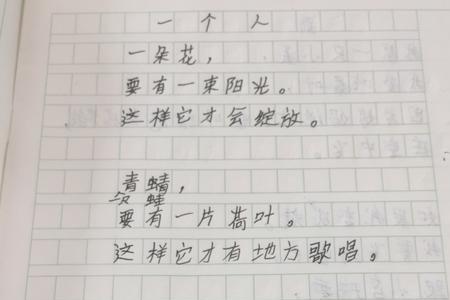 一个人
一朵花，
要有一束阳光。
这样它才会绽放。
青蜻，
要有一片荷叶。
这样它才有地方歌唱。